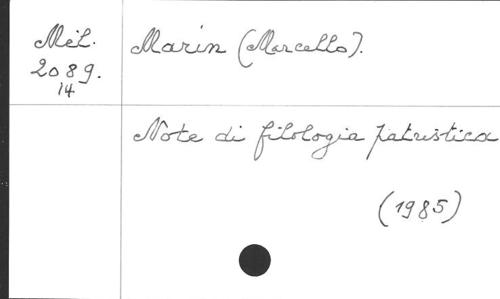 Mél.
2089.
14
Marin (Marcello).
Note di filologia patristica
(1985)